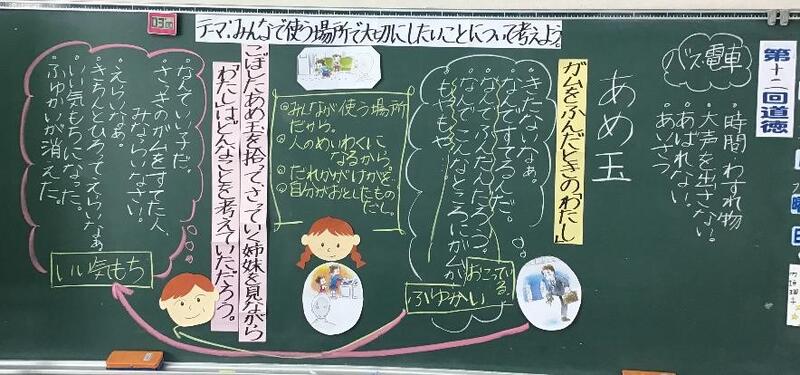 第十二回道徳
バス、電車
・時間 わすれ物
・大声を出さない。
・あばれない。
・あいさつ
あめ玉
テーマ:みんなで使う場所で大切にしたいことについて考えよう。
ガムをふんだときの「わたし」
・きたないなぁ。
・なんですてるんだ。
・なんでふんだんだろう。
・なんでこんなところにガムが
・もやもや
おこっている
ふゆかい
◎みんなが使う場所
だから。
◎人のめいわくに
なるから。
◎だれかがけがを
◎自分がおとしたもの
だし。
こぼしたあめ玉を拾って、さっていく姉妹を見ながら
「わたし」はどんなことを考えていただろう。
・なんていい子だ。
・さっきのガムをすてた人、
みならいなさい。
・えらいなぁ。
・きちんとひろってえらいなぁ
・いい気もちになった。
・ふゆかいが消えた。
いい気もち